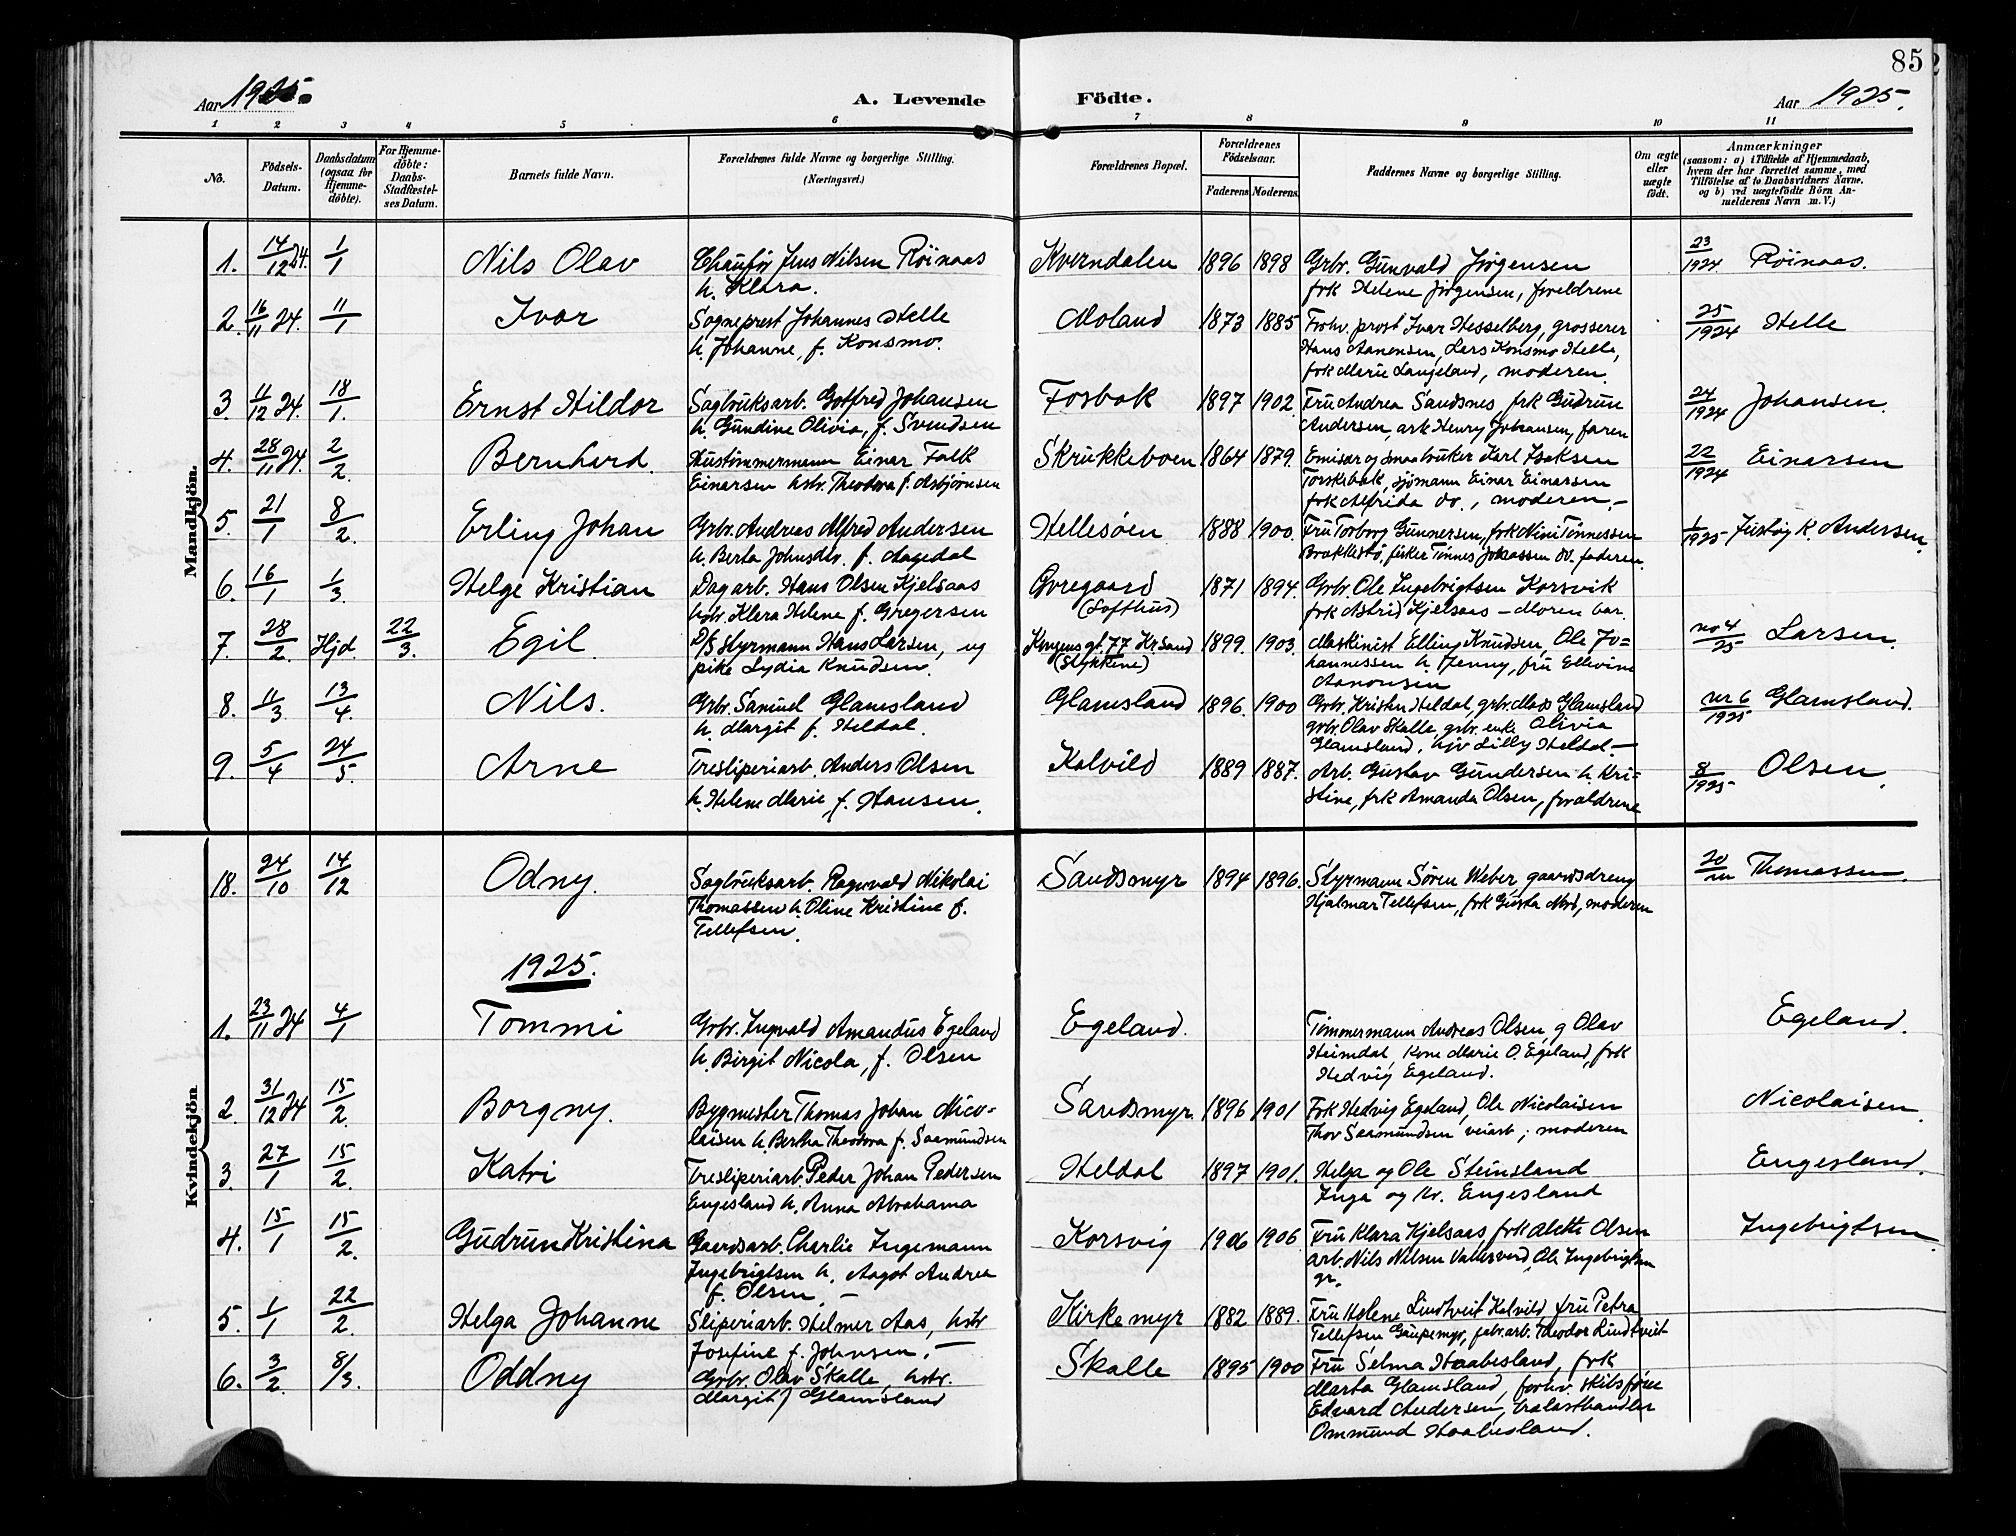 85
Aar 1925.
A. Levende Födte.
Aar 1925.
1 2 3 4 5 6 7 8 9 10 11
No.
Födsels-Datum.
Daabsdatum (ogsaa for Hjemme-döbte).
For Hjemme-döbte: Daabs-Stadfæstel-ses Datum.
Barnets fulde Navn.
Forældrenes fulde Navne og borgerlige Stilling. (Næringsvei.)
Forældrenes Bopæl.
Forældrenes Födselsaar.
Faderens. Moderens.
Faddernes Navne og borgerlige Stilling.
Om ægte eller uægte født.
Anmærkninger
(saasom: a) i Tilfælde af Hjemmedaab, hvem der har forrettet samme, med Tilføielse af to Daabsvidners Navne. og b) ved uægtefödte Börn An-melderens Navn m. V.)
Mandkjön.
1. 14/12 24. 1/1 Nils Olav Chaufför Jens Nilsen Röinaas Kverndalen 1896 1898 Grbr. Gunvald Jörgensen 23/1924 Röinaas.
h. Klara. frk Helene Jörgensen, foreldrene
2. 16/11 24. 11/1 Ivar Sogneprest Johannes Helle Moland 1873 1885 Forhv. prost Ivar Hesselberg, grosserer 25/1924 Helle
h. Johanne, f. Konsmo. Hans Aanensen, Lars Konsmo Helle,
frk Marie Langeland, moderen.
3. 11/12 24. 18/1. Ernst Hildor Sagbruksarb. Gotfred Johansen Fosbak 1897 1902. Fru Andrea Sandsnes, frk Gudrun 24/1924 Johansen.
h. Gundine Olivia, f. Svendsen Andersen, ark Henry Johansen, faren
4. 28/11 24. 2/2. Bernhard. Hustömmermann Einar Falk Skrukkeboen 1864 1879. Emisær og smaabruker Karl Isaksen 22/1924 Einarsen
Einarsen hstr. Theodora f. Asbjörnsen Torskebak, sjömann Einar Einarsen
frk Alfrida do., moderen.—
5. 21/1 8/2. Erling Johan Grbr. Andreas Alfred Andersen Hellesöen 1888 1900. Fru Torborg Gunnersen, frk Nini Tönnessen 1/1925 Justöy K. Andersen.
h. Berta Johnsdtr. f. Aagedal Brakkestö, fisker Tönnes Johnssen do. faderen.
6. 16/1 1/3. Helge Kristian Dagarb. Hans Olsen Kjelsaas Övregaard 1871 1894. Grbr. Ole Ingebrigtsen Korsvik
hstr. Klara Helene f. Gregersen (Lofthus) frk Astrid Kjelsaas — Moren bar.
7. 28/2. Hjd. 22/3. Egil. D/S Styrmann Hans Larsen, og Kongens gt. 77 Kr.sand 1899. 1903. Maskinist Elling Knudsen, Ole Jo= no 4/25 Larsen.
pike Lydia Knudsen. (Stykkene) hannessen h Jenny, fru Ellevine
Aanonsen
8. 11/3 13/4. Nils. Grbr. Samuel Glamsland Glamsland 1896. 1900 Grbr. Kristen Heldal, grbr. Mads Glamsland nr 6/1925 Glamsland.
h. Margit f. Heldal. grbr. Olav Skalle, grbr. enke Olivia
Glamsland, hjv Lilly Heldal —
9. 5/4 24/5. Arne Tresliperiarb. Anders Olsen Kalvild 1889 1887. Arb. Gustav Gundersen h. Kri= 8/1925 Olsen.
h. Helene Marie f. Hansen. stine, frk Amanda Olsen, foreldrene
Kvindekjön
18. 24/10 14/12 Odny. Sagbruksarb. Ragnvald Nikolai Sandsmyr 1894 1896. Styrmann Sören Weber, gaardsdreng 20/ Thomassen.
Thomassen h. Oline Kristine f. Hjalmar Tellefsen, frk Gusta Mod, moderen
Tellefsen.
1925.
1. 23/11 24 4/1 Tommi Grbr. Ingvald Amandus Egeland Egeland. Tömmermann Andreas Olsen, g Olav Egeland.
h. Birgit Nicola, f. Olsen Heimdal, kone Marie O. Egeland, frk
Hedvig Egeland.
2. 31/12 24 15/2. Borgny. Bygmester Thomas Johan Nico= Sandsmyr. 1896 1901 Frk Hedvig Egeland, Ole Nicolaisen Nicolaisen.
laisen h. Bertha Theodora f. Saamundsen Thov Saamundsen veiarb; moderen
3. 27/1 15/2. Katri Tresliperiarb Peder Johan Pedersen Heldal 1897 1901. Helga og Ole Steinsland Engesland.
Engesland h. Anna Abrahama Inga og Kr. Engesland
4. 15/1 15/2. Gudrun Kristina Gaardsarb. Charlie Ingemann Korsvig 1906 1906. Fru Klara Kjelsaas, frk Alette Olsen Ingebrigtsen.
Ingebrigtsen h. Aagot Andrea arb. Nils Nilsen Vatteverd, Ole Ingebrigtsen
f. Olsen.— gr.
5. 1/1 22/2. Helga Johanne Sliperiarb. Helmer Aas, hstr Kirkemyr 1882 1889. Fru Helene Lindtveit Kalvild, fru Petra
Josefine f. Johnsen.— Tellefsen Gaupemyr, fabr.arb. Theodor Lindtveit
6. 3/2. 8/3. Oddny Grbr. Olav Skalle, hstr. Skalle 1895 1900 Fru Selma Haabesland, frk
Margit f Glamsland Marta Glamsland, forhv. skibsförer
Edvard Andersen, tralasthandler
Ommund Haabesland.